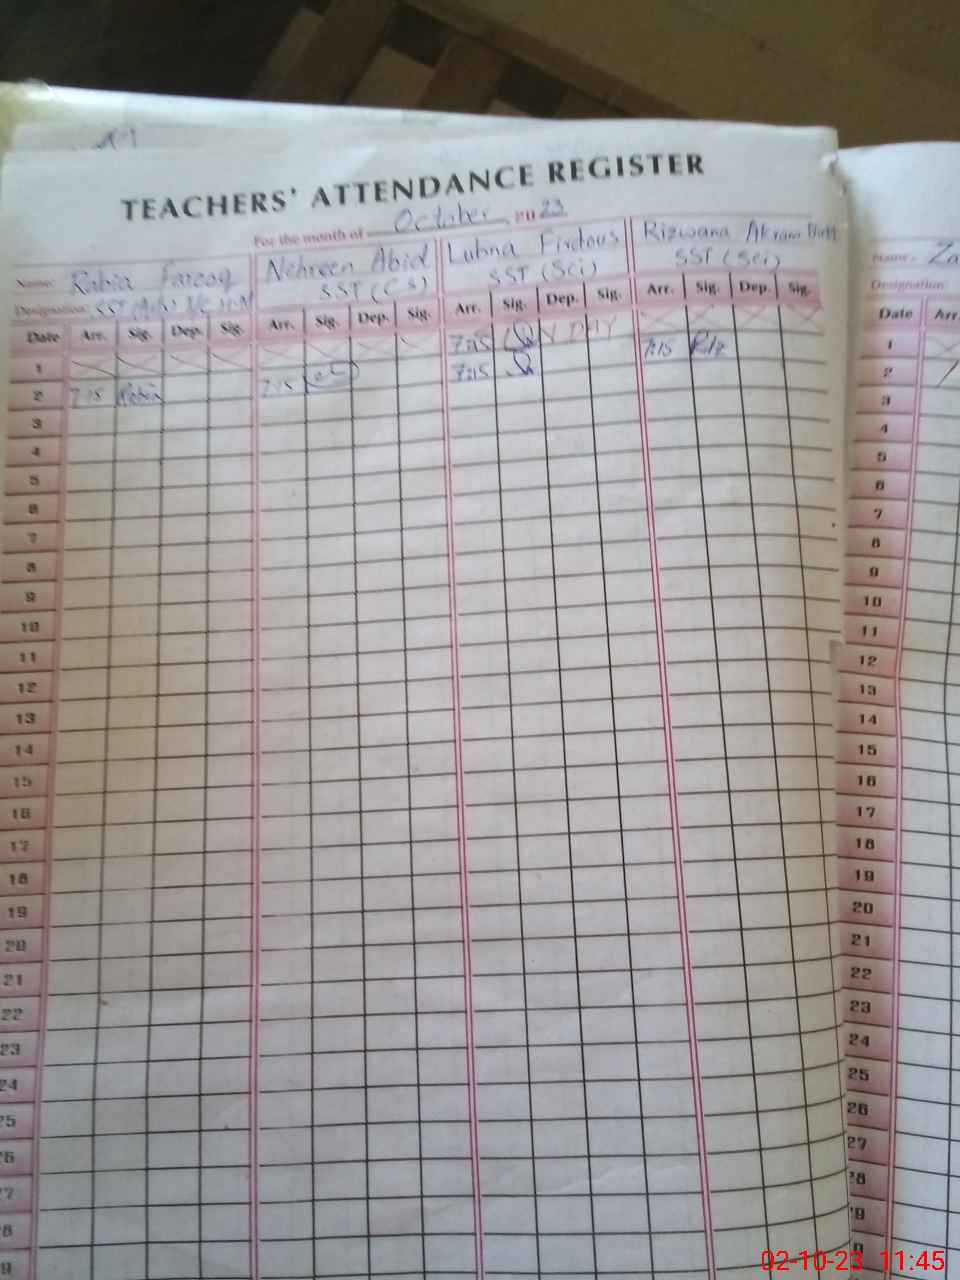 TEACHERS' ATTENDANCE REGISTER
For the month of October 2023
Name Rabia Farooq Nehreen Abid Lubna Firdous Rizwana Akram Butt
Designation SST SST (CS) SST (Sci) SST (Sci)
Date Arr. Sig. Dep. Sig. Arr. Sig. Dep. Sig. Arr. Sig. Dep. Sig. Arr. Sig. Dep. Sig.
1 7:15 DAY
2 7:15 Rabia 7:15 7:15 7:15
3
4
5
6
7
8
9
10
11
12
13
14
15
16
17
18
19
20
21
22
23
24
25
26
27
28
29
Name Za
Designation
Date Arr.
1
2
3
4
5
6
7
8
9
10
11
12
13
14
15
16
17
18
19
20
21
22
23
24
25
26
27
28
29
02-10-23 11:45